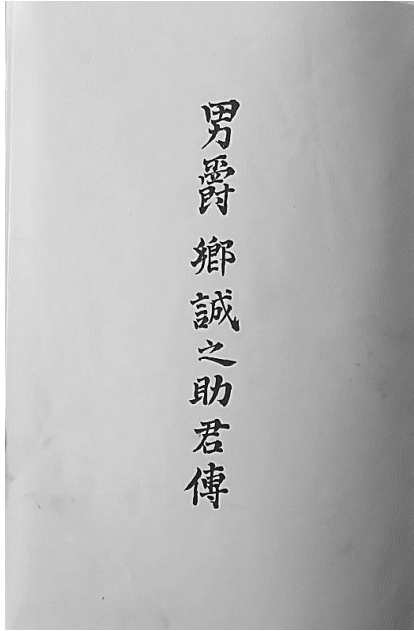 男爵 郷誠之助君傳